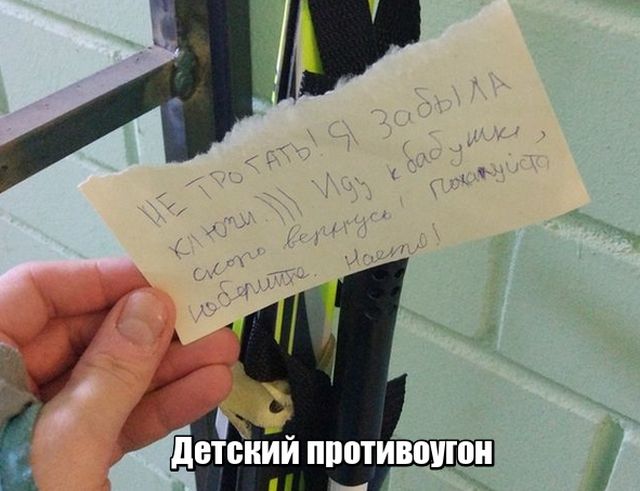 НЕ ТРОГАТЬ! Я ЗАбЫЛА
КЛЮЧИ.))) Иду к бабушке,
скоро вернусь! Пожалуйста
не берите. Настя!
Детский противоугон